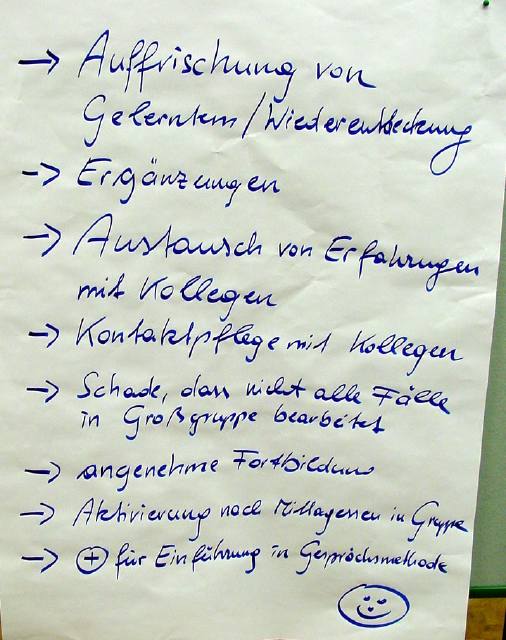 → Auffrischung von
Gelerntem / Wiederentdeckung
→ Ergänzungen
→ Austausch von Erfahrungen
mit Kollegen
→ Kontaktpflege mit Kollegen
→ Schade, dass nicht alle Fälle
in Großgruppe bearbeitet
→ angenehme Fortbildung
→ Aktivierung nach Mittagessen in Gruppe
→ ⊕ für Einführung in Gesprächsmethode